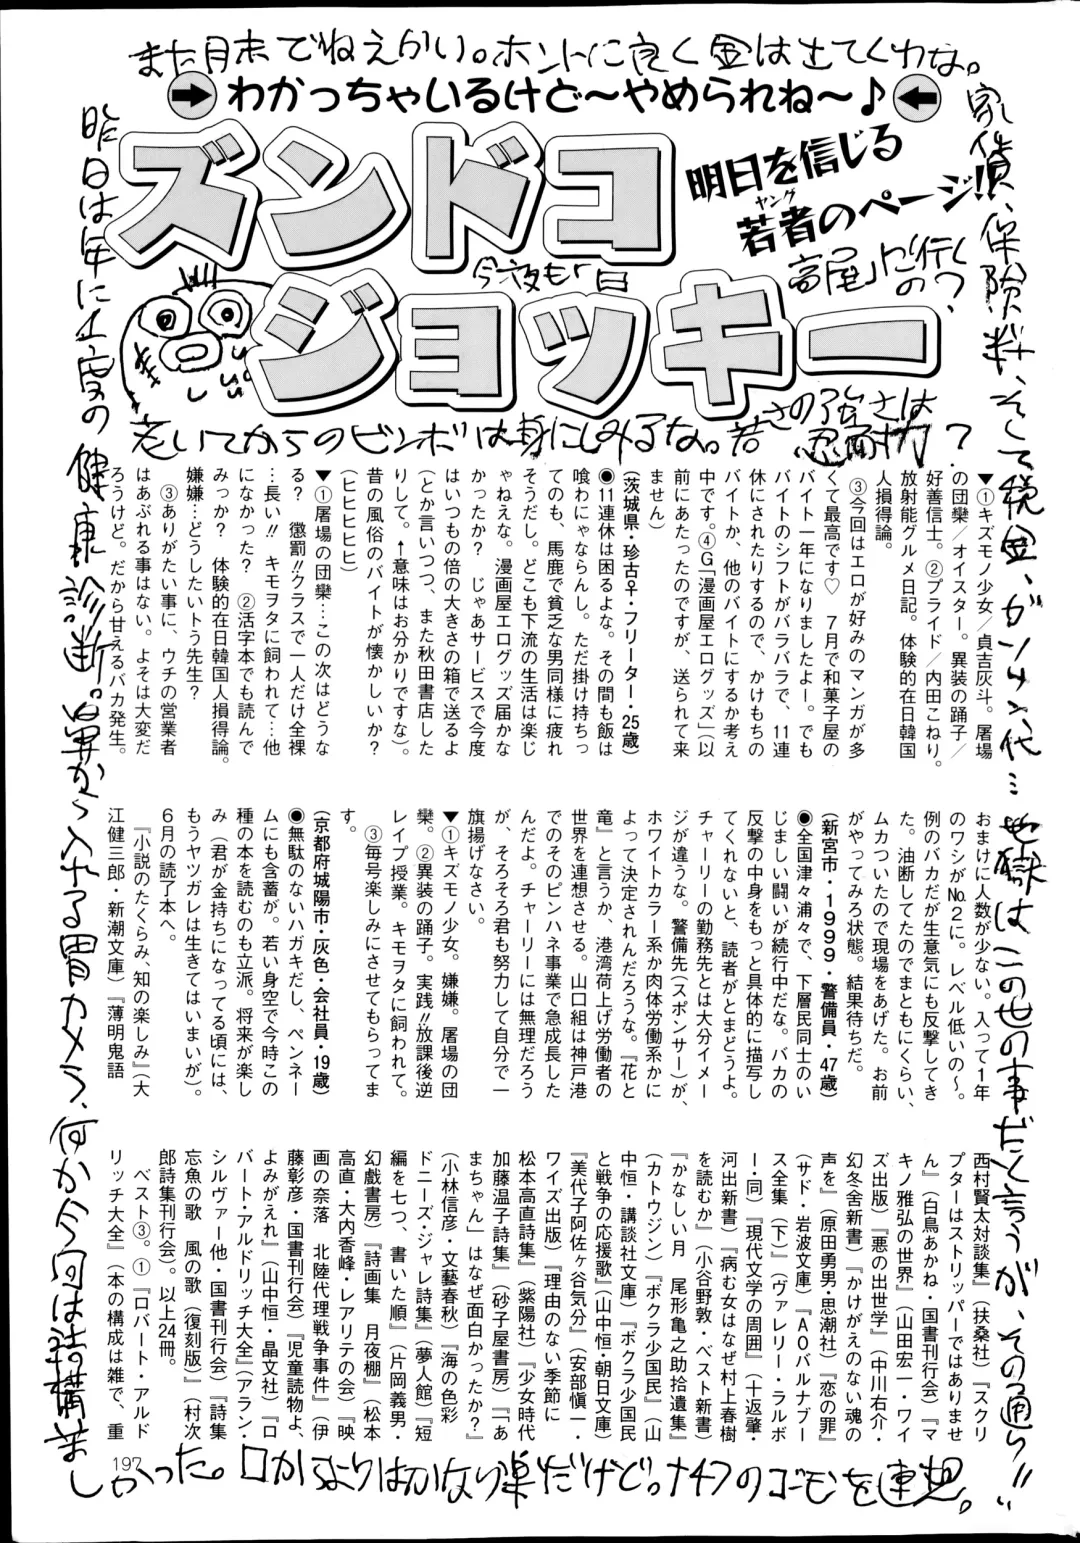 また月末でねえかい。ホントに良く金は出てくわな。
わかっちゃいるけど〜やめられね〜♪
ズンドコ
ジョッキー
明日を信じる
若者のページ!!
ヤング
高尾山に行くの?
今夜も、白
老いてからのビンボは身にしみるな。若さの強さは忍耐力?
家賃、保険料、そして税金、ガソリン代…地獄はこの世の事だと言うが、その通り!!
昨日は年に1度の健康診断。鼻から入れる胃カメラ、何か今回は結構苦しかった。口からよりはかなり楽だけど。ナチフのゴーモンを連想。
▼①キズモノ少女/貞吉灰斗。屠場
の団欒/オイスター。異装の踊子/
好善信士。②プライド/内田こねり。
放射能グルメ日記。体験的在日韓国
人損得論。
③今回はエロが好みのマンガが多
くて最高です♡ 7月で和菓子屋の
バイト一年になりましたよー。でも
バイトのシフトがバラバラで、11連
休にされたりするので、かけもちの
バイトか、他のバイトにするか考え
中です。④G「漫画屋エログッズ」(以
前にあたったのですが、送られて来
ません)
(茨城県・珍古♀・フリーター・25歳)
●11連休は困るよな。その間も飯は
喰わにゃならんし。ただ掛け持ちっ
てのも、馬鹿で貧乏な男同様に疲れ
そうだし。どこも下流の生活は楽じ
ゃねえな。漫画屋エログッズ届かな
かったか? じゃあサービスで今度
はいつもの倍の大きさの箱で送るよ
(とか言いつつ、また秋田書店した
りして。↑意味はお分かりですな)。
昔の風俗のバイトが懐かしいか?
(ヒヒヒヒヒ)
▼①屠場の団欒…この次はどうな
る? 懲罰!!クラスで一人だけ全裸
…長い!! キモヲタに飼われて…他
になかった? ②活字本でも読んで
みっか? 体験的在日韓国人損得論。
嫌嫌…どうしたいトう先生?
③ありがたい事に、ウチの営業者
はあぶれる事はない。よそは大変だ
ろうけど。だから甘えるバカ発生。
おまけに人数が少ない。入って1年
のワシがNo.2に。レベル低いの〜。
例のバカだが生意気にも反撃してき
た。油断してたのでまともにくらい、
ムカついたので現場をあげた。お前
がやってみろ状態。結果待ちだ。
(新宮市・1999・警備員・47歳)
●全国津々浦々で、下層民同士のい
じましい闘いが続行中だな。バカの
反撃の中身をもっと具体的に描写し
てくれないと、読者がとまどうよ。
チャーリーの勤務先とは大分イメー
ジが違うな。警備先(スポンサー)が、
ホワイトカラー系か肉体労働系かに
よって決定されんだろうな。『花と
竜』と言うか、港湾荷上げ労働者の
世界を連想させる。山口組は神戸港
でのそのピンハネ事業で急成長した
んだよ。チャーリーには無理だろう
が、そろそろ君も努力して自分で一
旗揚げなさい。
▼①キズモノ少女。嫌嫌。屠場の団
欒。②異装の踊子。実践!!放課後逆
レイプ授業。キモヲタに飼われて。
③毎号楽しみにさせてもらってま
す。
(京都府城陽市・灰色・会社員・19歳)
●無駄のないハガキだし、ペンネー
ムにも含蓄が。若い身空で今時この
種の本を読むのも立派。将来が楽し
み(君が金持ちになってる頃には、
もうヤツガレは生きてはいまいが)。
6月の読了本へ。
『小説のたくらみ、知の楽しみ』(大
江健三郎・新潮文庫)『薄明鬼語
西村賢太対談集』(扶桑社)『スクリ
プターはストリッパーではありませ
ん』(白鳥あかね・国書刊行会)『マ
キノ雅弘の世界』(山田宏一・ワイ
ズ出版)『悪の出世学』(中川右介・
幻冬舎新書)『かけがえのない魂の
声を』(原田勇男・思潮社)『恋の罪』
(サド・岩波文庫)『AOバルナブー
ス全集(下)』(ヴァレリー・ラルボ
ー・同)『現代文学の周囲』(十返肇・
河出新書)『病む女はなぜ村上春樹
を読むか』(小谷野敦・ベスト新書)
『かなしい月 尾形亀之助拾遺集』
(カトウジン)『ボクラ少国民』(山
中恒・講談社文庫)『ボクラ少国民
と戦争の応援歌』(山中恒・朝日文庫)
『美代子阿佐ヶ谷気分』(安部愼一・
ワイズ出版)『理由のない季節に
松本高直詩集』(紫陽社)『少女時代
加藤温子詩集』(砂子屋書房)『「あ
まちゃん」はなぜ面白かったか?』
(小林信彦・文藝春秋)『海の色彩
ドニーズ・ジャレ詩集』(夢人館)『短
編を七つ、書いた順』(片岡義男・
幻戯書房)『詩画集 月夜棚』(松本
高直・大内香峰・レアリテの会)『映
画の奈落 北陸代理戦争事件』(伊
藤彰彦・国書刊行会)『児童読物よ、
よみがえれ』(山中恒・晶文社)『ロ
バート・アルドリッチ大全』(アラン・
シルヴァー他・国書刊行会)『詩集
忘魚の歌 風の歌(復刻版)』(村次
郎詩集刊行会)。以上24冊。
ベスト③。①『ロバート・アルド
リッチ大全』(本の構成は雑で、重
197